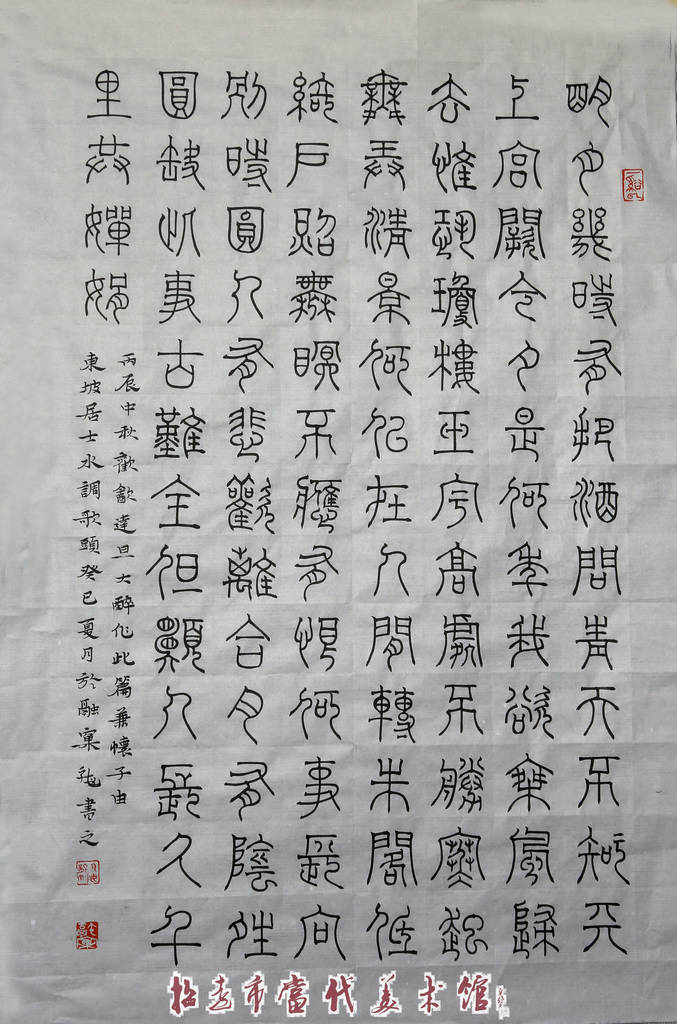 明月幾時有把酒問青天不知天
上宮闕今夕是何年我欲乘風歸
去惟恐瓊樓玉宇高處不勝寒起
舞弄清景何似在人間轉朱閣低
綺戶照無眠不應有恨何事長向
別時圓人有悲歡離合月有陰晴
圓缺此事古難全但願人長久千
里共嬋娟
丙辰中秋歡飲達旦大醉作此篇兼懷子由
東坡居士水調歌頭癸巳夏月於融巢書之
招远市當代美术馆